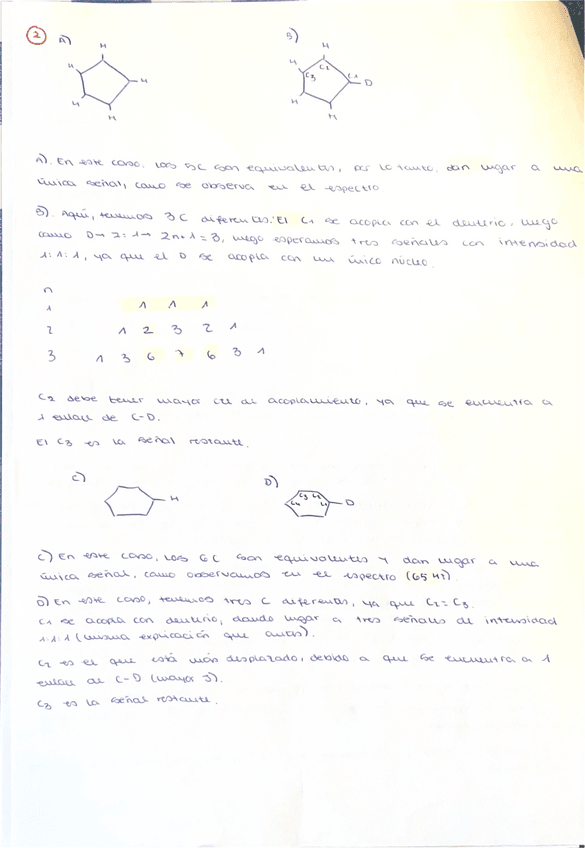 2
A)
H
H
H
H
H
B)
H
H
C2
C3
C1
D
H
H
A). En este caso, los 5C son equivalentes, por lo tanto, dan lugar a una
única señal, como se observa en el espectro
B). Aquí, tenemos 3C diferentes. El C1 se acopla con el deuterio, luego
como D → I = 1 → 2n+1 = 3, luego esperamos tres señales con intensidad
1:1:1, ya que el D se acopla con un único núcleo.
n
1 1 1 1
2 1 2 3 2 1
3 1 3 6 7 6 3 1
C2 debe tener mayor cte de acoplamiento, ya que se encuentra a
1 enlace de C-D.
El C3 es la señal restante.
C)
H
D)
C3 C2
C4 C1
D
C) En este caso, los 6C son equivalentes y dan lugar a una
única señal, como observamos en el espectro (65 Hz).
D) En este caso, tenemos tres C diferentes, ya que C2=C3.
C1 se acopla con deuterio, dando lugar a tres señales de intensidad
1:1:1 (misma explicación que antes).
C2 es el que está más desplazado, debido a que se encuentra a 1
enlace de C-D (mayor J).
C3 es la señal restante.